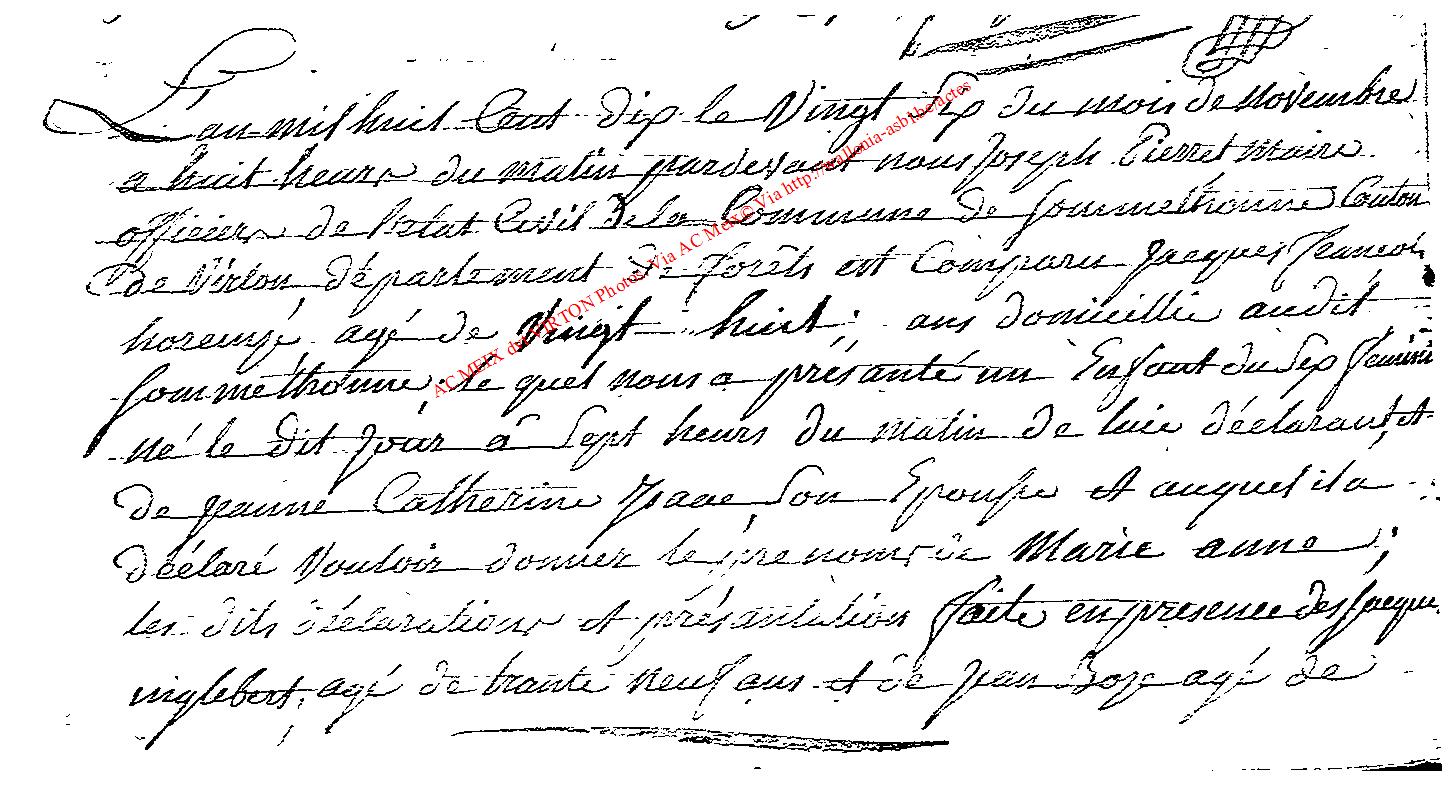 L'an mil huit Cent dix le Vingt Six du mois de novembre
a huit heurs du matin pardevant nous Joseph Pierret maire
officier de l'etat Civil de la Commune de Sommethonne Canton
de Virton département de forêts est Comparu Jacques francois
agé de Vingt huit ans domicillié audit
Sommethonne, le quel nous a présanté un Enfant du Sex feminin
né le dit jour à Sept heurs du matin de luie déclarant, et
de jeanne Catherine Isaac Son Epousse et auquel il a
déclaré Vouloir donner le prenoms de Marie anne;
les dits déclarations et présantation faite en presence des Jacque
inglebert, agé de trante neuf ans et de jean agé de
AC MEIX dt VIRTON Photos. Via AC MEIX© Via http://wallonia-asbl.be/actes